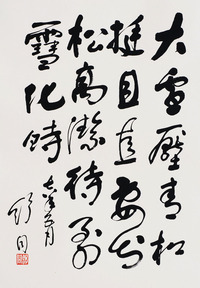 大雪壓青松
挺且直要知
松高潔待到
雪化時
年 月
舒同